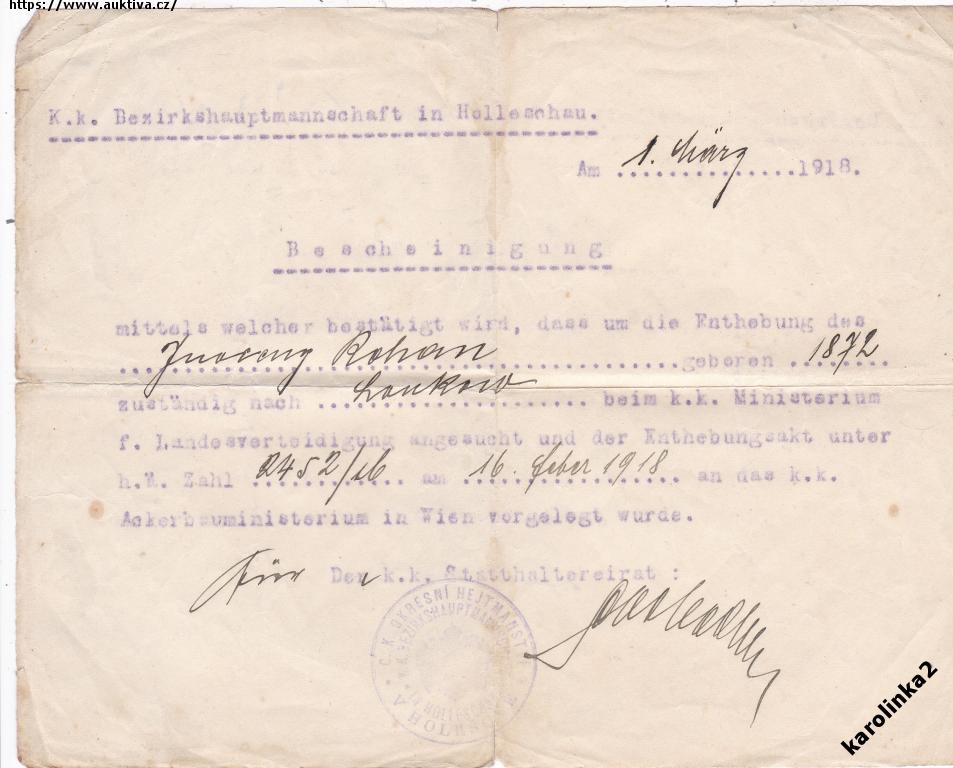 https://www.auktiva.cz/
K.k. Bezirkshauptmannschaft in Holleschau.
Am 1. März 1918.
Bescheinigung
mittels welcher bestätigt wird, dass um die Enthebung des
Inocenz Rohan geboren 1872
zuständig nach Loukow beim k.k. Ministerium
f. Landesverteidigung angesucht und der Enthebungsakt unter
h.Ä. Zahl 2452/16 am 16. Feber 1918 an das k.k.
Ackerbauministerium in Wien vorgelegt wurde.
Für Der k.k. Statthaltereirat :
C. K. OKRESNÍ HEJTMANST
K.K. BEZIRKSHAUPTMANNSCH
karolinka2